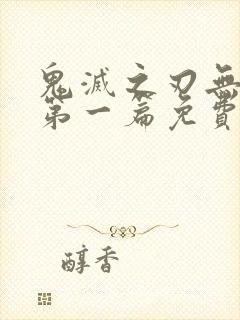 鬼滅之刃無
第一篇免費
醇香